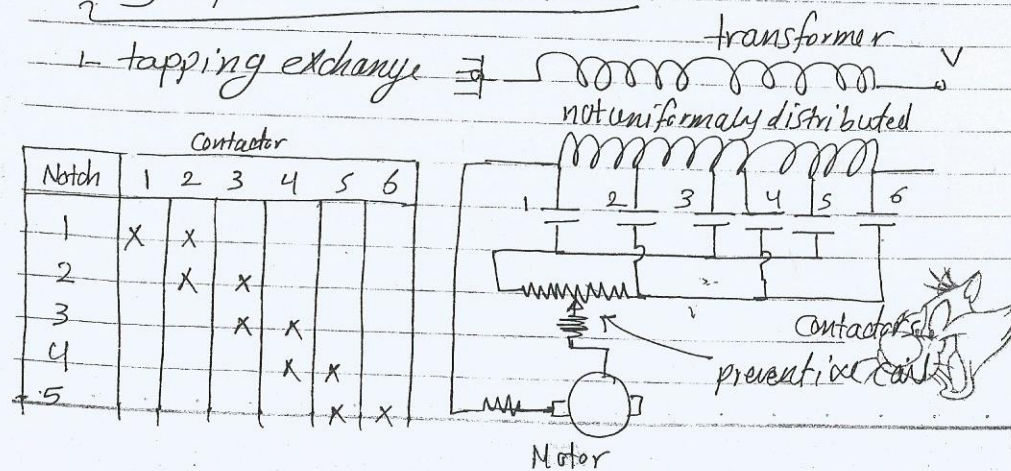 1- tapping exchange
transformer
V
not uniformaly distributed
Contactor
Notch 1 2 3 4 5 6
1 x x
2 x x
3 x x
4 x x
5 x x
1 2 3 4 5 6
Contactors
preventive coil
Motor